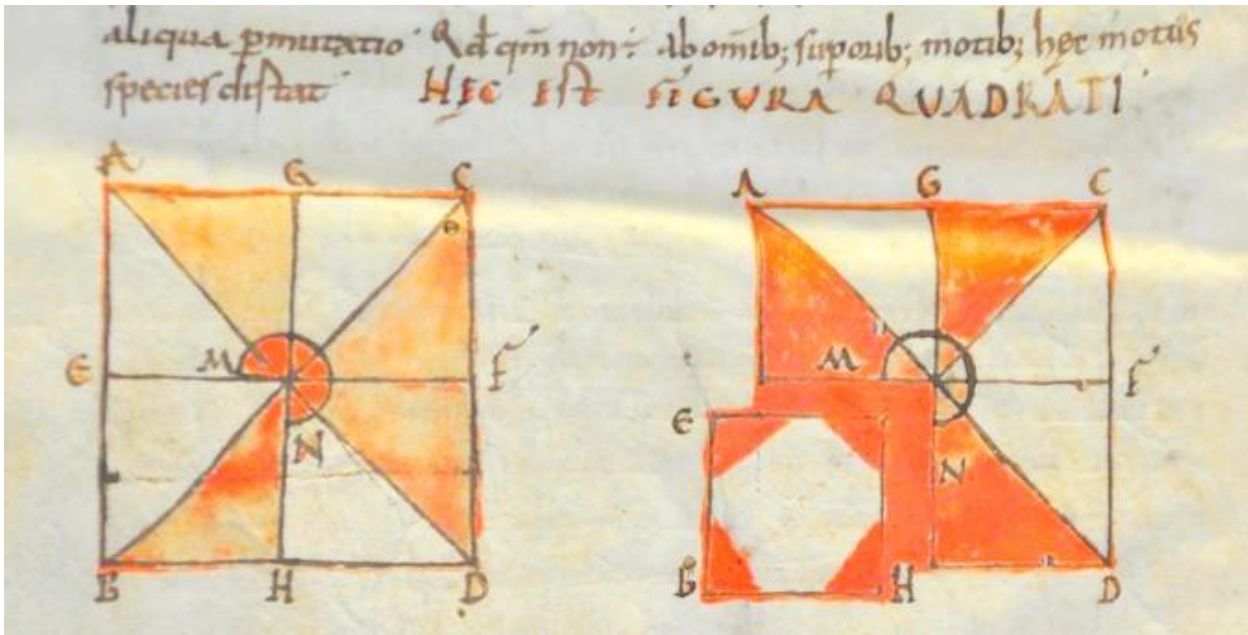 aliqua pmutatio Qd qm non ÷ Ab omib; suporib; motib; hęc motus
species distat HĘC EST FIGURA QUADRATI
A G C A G C
E M F M F
N E N
B H D B H D